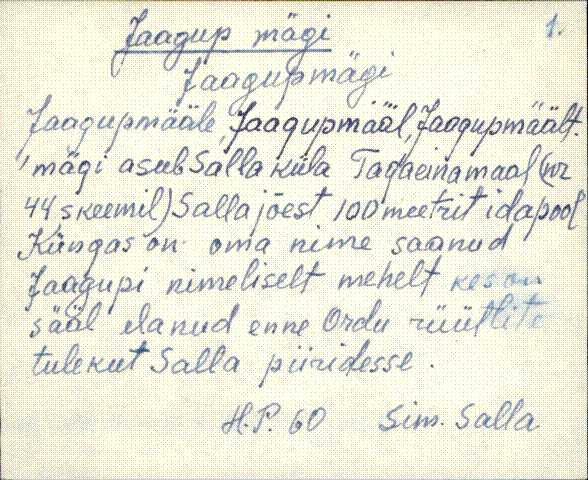 1.
Jaagup mägi
Jaagupmägi
Jaagupmääle, Jaagupmääl, Jaagupmäält.
mägi asub Salla küla Tagaeinamaal (nr
44, skeemil) Salla jõest 100 meetrit idapool
Küngas on oma nime saanud
Jaagupi nimeliselt mehelt kes on
sääl elanud enne Ordu rüütlite
tulekut Salla piiridesse.
H.P. 60 Sim. Salla